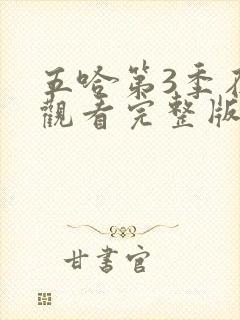 五哈第3季在
觀看完整版
甘書官